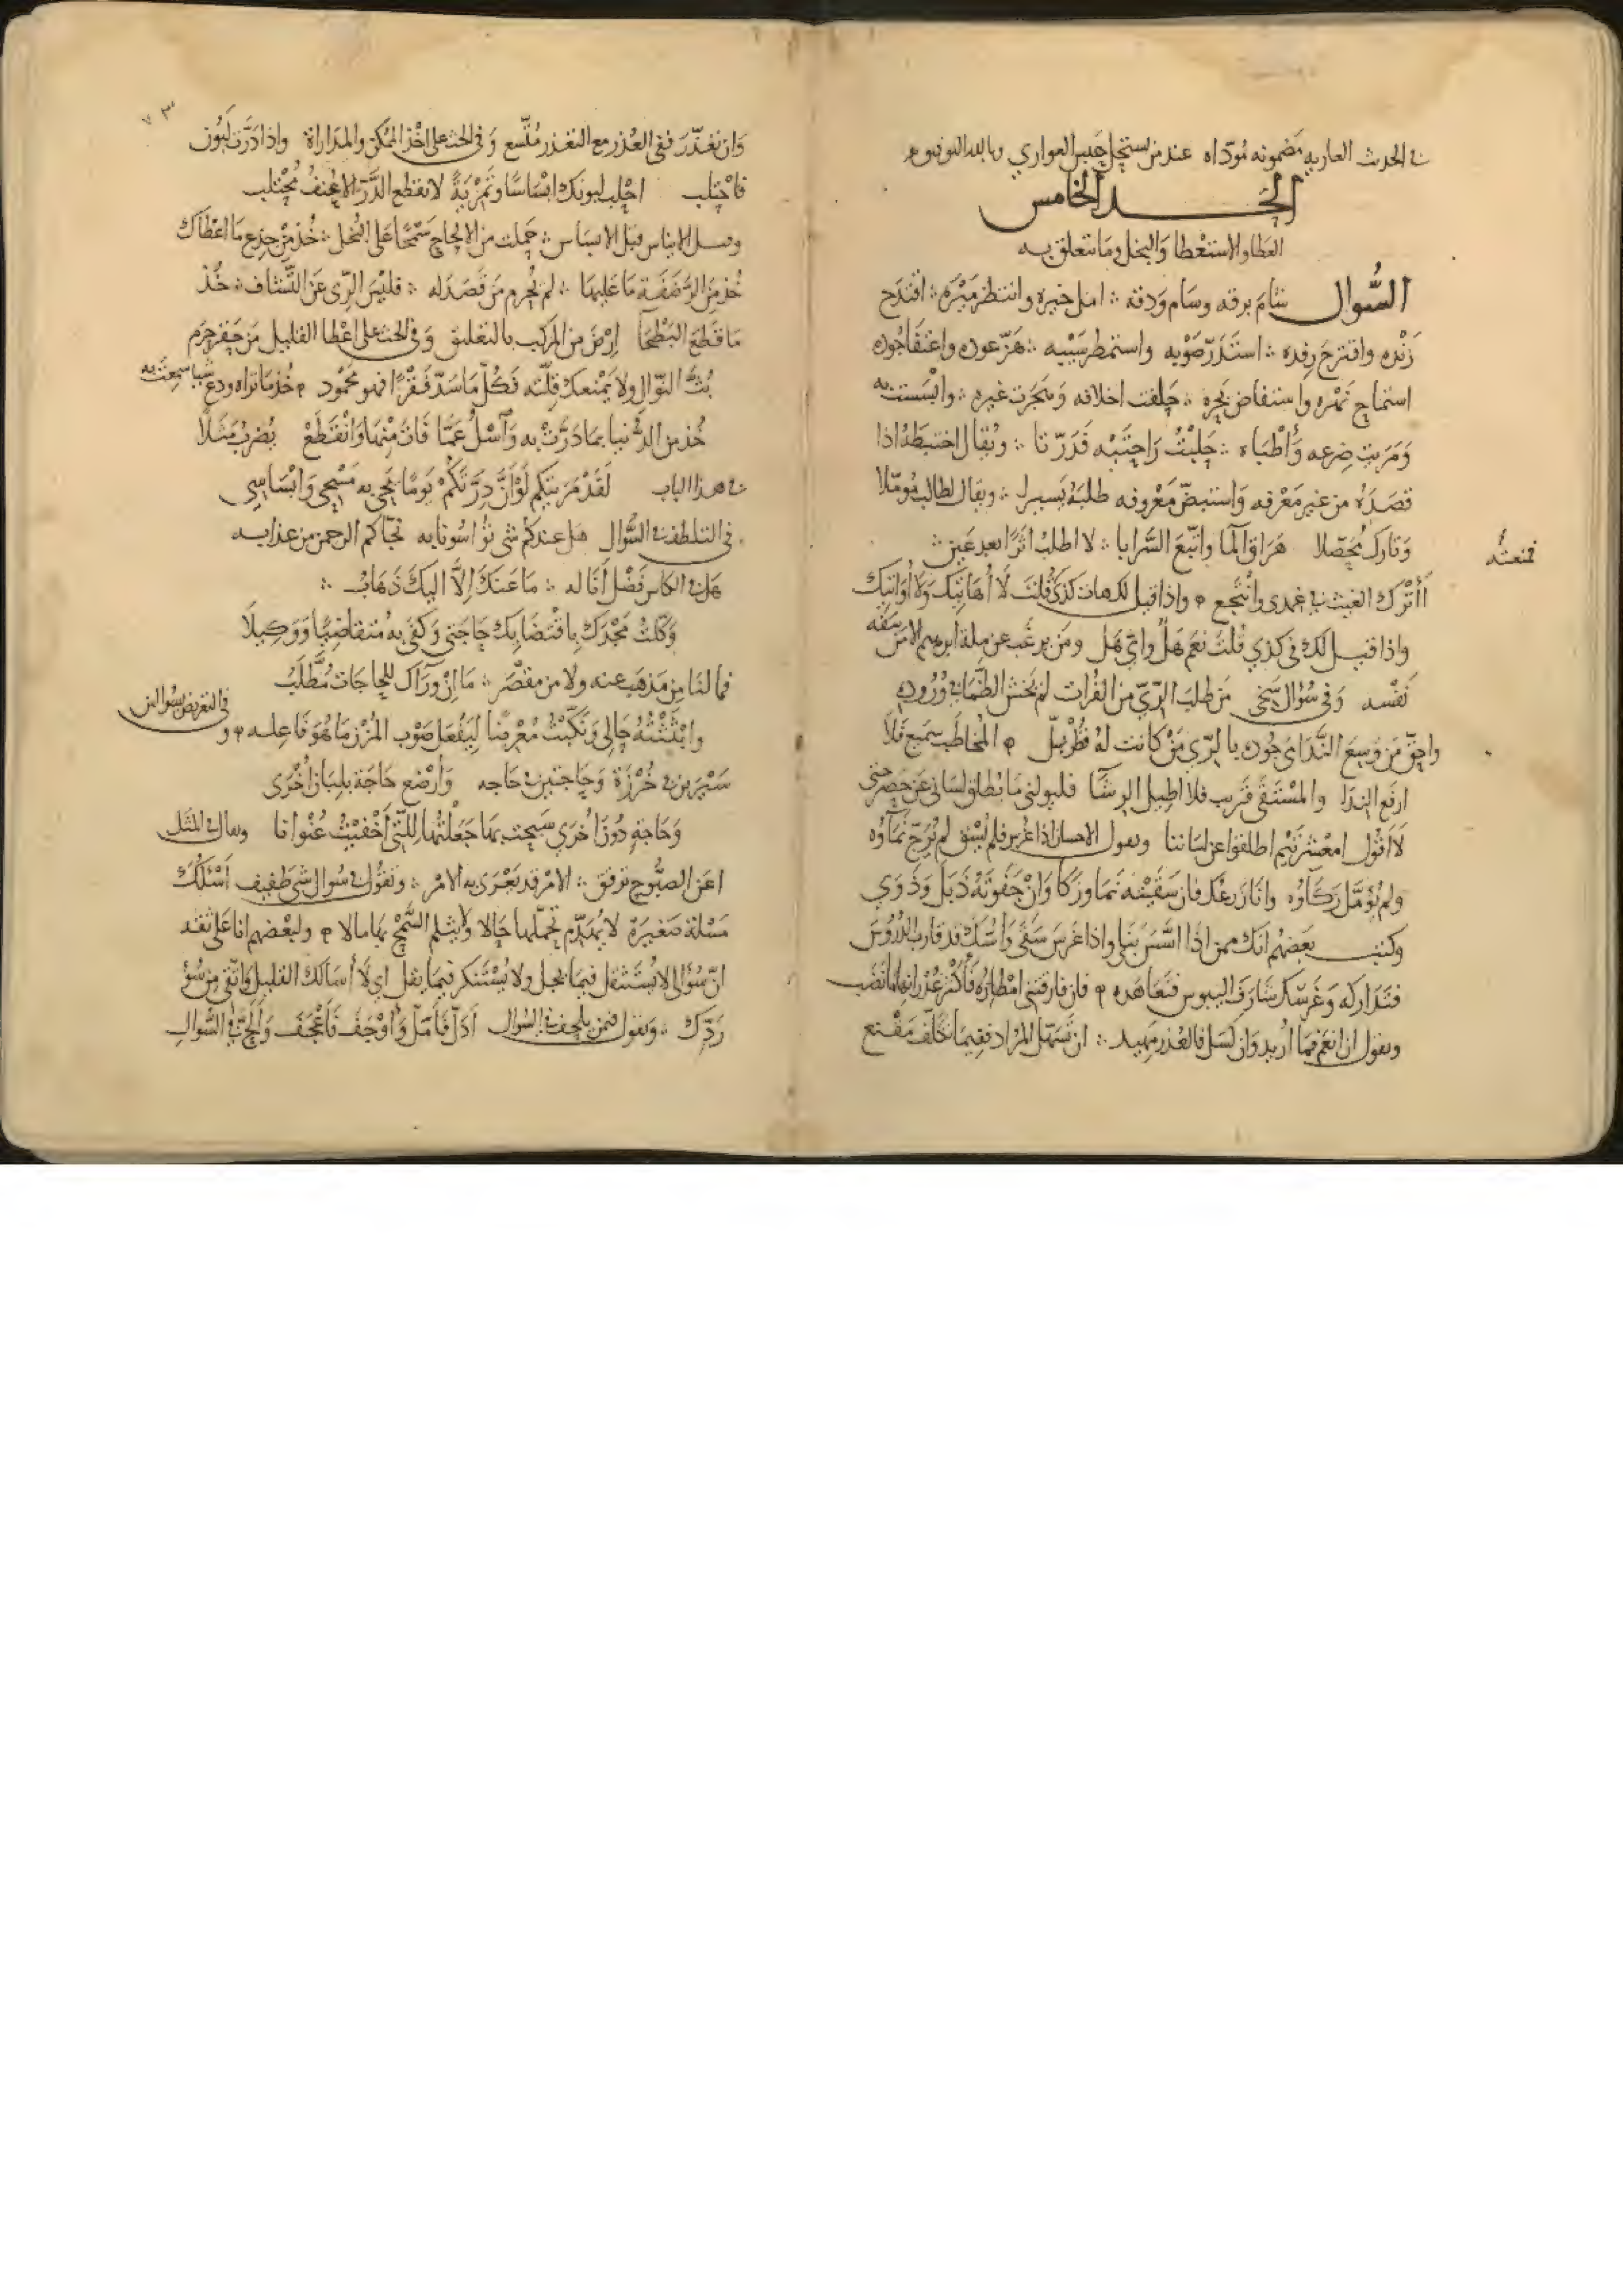 في الحدث العارية مضمونة مؤداه عند من يستحل حبس العواري وبالله التوفيق
الحد الخامس
العطا والاستعطا والبخل وما يتعلق به
السُّوال شام برقه وسام ودقه ∴ امل خيره وانتظر ميره ∴ اقتدح
زنده واقترح رفده ∴ استدرّ صوبه واستمطر سيبه ∴ هزّ عوده واعتفا جوده
استماح نهره واستفاض بحره ∴ حلفت اخلافه وشجرت غيره ∴ وابسست به
ومريت ضرعه وأطباه ∴ حلبت راحتيه فدرّتا ∴ ويقال اختبطه اذا
قصده من غير معرفه واستبضّ معروفه طلبه يسيرا ∴ ويقال لطالب مؤمّلا
وتارك مُحَصّلا هراق الما واتبع السَّرابا ∴ لا اطلب اثرًا بعد عين ∴
فمنعته
أأترك الغيث في غمدى وانتجع واذا قيل لك هات كذى قلت لا أهاتيك ولا أواتيك
واذا قيل لك في كذي قلت نعم هل وايّ هل ومن يرغب عن ملة ابرهيم الا من سفه
نفسه وفي سؤال سخي من طلب الرّيّ من الفرات لم يخش الظما في وروده
واحقّ من وسع الندَاى جوده بالرّي من كانت له قطربل المخاطب سميع فلا
ارفع الندا والمستقى قريب فلا اطيل الرشا فليولنى ما يطلق لسانى عن حصر حتى
لا اقول امعشر تيم اطلقوا عن لسانيا ويقول الاحسان اذا غرس فلم يسق لم يرج نماؤه
ولم يؤمّل زكاؤه وانا زرعك فان سقيته نما وزكا وان جفوته ذبل وذوي
وكتب بعضهم انك ممن اذا اسّس بنى واذا غرس سقى وأسّك قد قارب الدروس
فتداركه وغرسك شارف اليبوس فتعاهده فان فارقتنى امطاره فأكثر غدرانها ما نضب
ويقول ان انعم فما أريد وان كسل فالعذر مهيد ∴ ان تسهّل المراد ففيما تخلّف مقنع
٧٣
وان تعذّر ففي العذر مع التعذر متّسع وفي الحث على اخذ الممكن والمداراة واذا درّت لبون
فاحتلب احلب لبونك ابساسًا وتمرية لا يقطع الدَّرّ الا عنف محتلب
ومثل الايناس قبل الابساس ∴ حملت من الالحاح سمحًا على البخل ∴ خذ من جذع ما اعطاك
خذ من الرضفة ما عليها ∴ لم يحرم من فصد له ∴ فليس الرّي عن التشاف ∴ خذ
ما قطع البطحا ارض من المركب بالتعليق وفي الحث على اعطا القليل من حقر حرم
بُثَّ النوال ولا يمنعك قلته فكل ما سدّ فقرًا فهو محمود خذ ما تراه ودع شيا سمعت به
خذ من الدنيا بما درّت به وآسل عمّا فات منها وانقطع يضرب مثلا
في هذا الباب لقد مريتكم لو أن درتكم يومًا يجي به مسحي وابساسي
في التلطف في السُّوال هل عندكم شى نؤاسونا به نجاكم الرحمن من عذابه
هل في الكاس فضل أناله ∴ ما عنك إلا اليك ذهاب ∴
وكلت مجدك باقتضايك حاجتى وكفى به متقاضيًا ووكيلا
فما لنا من مذهب عنه ولا من مقصر ∴ ما ان وراك للحاجات مطّلب
وابثثته حالي ونكبت معرضا ليفعل صوب المزن ما هو فاعله و
في التعريض بسوالين
سيرين في خرزة وحاجتين في حاجه وأرضع حاجة بلبان أخرى
وحاجة دون أخرى سنحت بها جعلتها للتى أخفيت عنوانا ويقال في المثل
اعن الصبوح ترقق ∴ الامر قد يغرى به الامر ∴ ويقول في سوال شى طفيف اسئلك
مسئلة صغيرة لا يهدم تحملها حالا ولا يثلم السمح بها مالا ولبعضهم انا على ثقه
انّ سؤالى لا يستثقل فيما يجل ولا يستنكر فيما يقل اي لا أسالك القليل واتقى من سؤ
ردّك ∴ ويقول فيمن يلحف في السؤال ادلّ فأملّ وأوجف فأعجف وألحّ في السُّوال